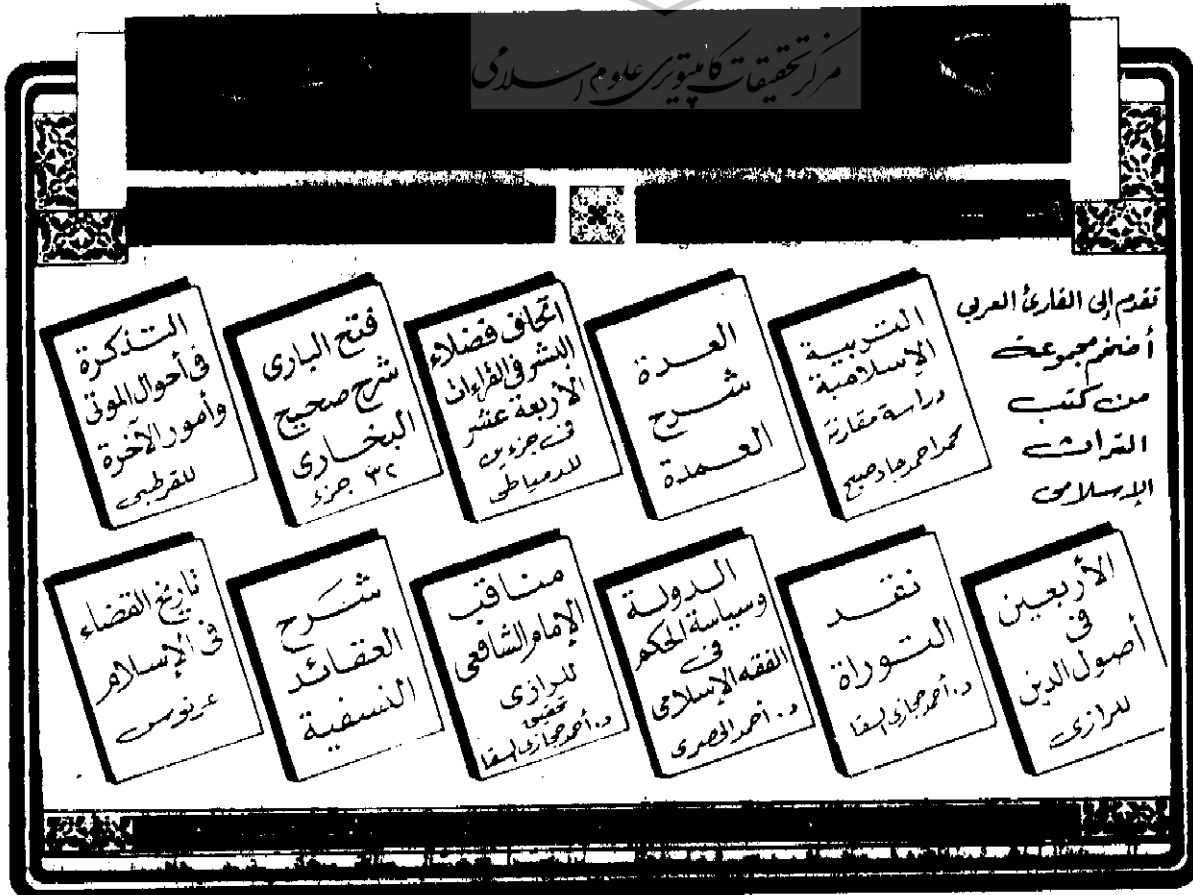 مركز تحقیقات كامپیوتری علوم اسلامی
تقدم إلى القارئ العربي
أضخم مجموعة
من كتب
التراث
الإسلامى
التربية
الإسلامية
دراسة مقارنة
محمد أحمد جاد صبح
العدة
شرح
العمدة
اتحاف فضلاء
البشر فى القراءات
الأربعة عشر
فى جزءين
للدمياطى
فتح البارى
شرح صحيح
البخارى
٣٢ جزء
التذكرة
فى أحوال الموتى
وأمور الآخرة
للقرطبى
الأربعين
فى
أصول الدين
للرازى
نقد
التوراة
د. أحمد حجازى السقا
الدولة
وسياسة الحكم
فى
الفقه الإسلامى
د. أحمد الحصرى
مناقب
الإمام الشافعى
للرازى
تحقيق
د. أحمد حجازى السقا
شرح
العقائد
النسفية
تاريخ القضاء
فى الإسلام
عرنوس